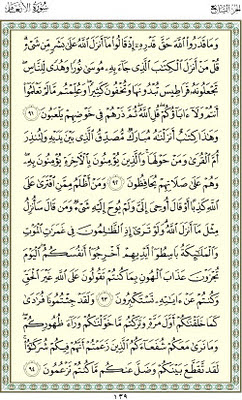 الجزء السابع سورة الأنعام
وَمَا قَدَرُوا۟ ٱللَّهَ حَقَّ قَدْرِهِۦٓ إِذْ قَالُوا۟ مَآ أَنزَلَ ٱللَّهُ عَلَىٰ بَشَرٍ مِّن شَىْءٍ
قُلْ مَنْ أَنزَلَ ٱلْكِتَٰبَ ٱلَّذِى جَآءَ بِهِۦ مُوسَىٰ نُورًا وَهُدًى لِّلنَّاسِ
تَجْعَلُونَهُۥ قَرَاطِيسَ تُبْدُونَهَا وَتُخْفُونَ كَثِيرًا وَعُلِّمْتُم مَّا لَمْ تَعْلَمُوٓا۟
أَنتُمْ وَلَآ ءَابَآؤُكُمْ قُلِ ٱللَّهُ ثُمَّ ذَرْهُمْ فِى خَوْضِهِمْ يَلْعَبُونَ ٩١
وَهَٰذَا كِتَٰبٌ أَنزَلْنَٰهُ مُبَارَكٌ مُّصَدِّقُ ٱلَّذِى بَيْنَ يَدَيْهِ وَلِتُنذِرَ
أُمَّ ٱلْقُرَىٰ وَمَنْ حَوْلَهَا وَٱلَّذِينَ يُؤْمِنُونَ بِٱلْـَٔاخِرَةِ يُؤْمِنُونَ بِهِۦ
وَهُمْ عَلَىٰ صَلَاتِهِمْ يُحَافِظُونَ ٩٢ وَمَنْ أَظْلَمُ مِمَّنِ ٱفْتَرَىٰ عَلَى
ٱللَّهِ كَذِبًا أَوْ قَالَ أُوحِىَ إِلَىَّ وَلَمْ يُوحَ إِلَيْهِ شَىْءٌ وَمَن قَالَ سَأُنزِلُ
مِثْلَ مَآ أَنزَلَ ٱللَّهُ وَلَوْ تَرَىٰٓ إِذِ ٱلظَّٰلِمُونَ فِى غَمَرَٰتِ ٱلْمَوْتِ
وَٱلْمَلَٰٓئِكَةُ بَاسِطُوٓا۟ أَيْدِيهِمْ أَخْرِجُوٓا۟ أَنفُسَكُمُ ٱلْيَوْمَ
تُجْزَوْنَ عَذَابَ ٱلْهُونِ بِمَا كُنتُمْ تَقُولُونَ عَلَى ٱللَّهِ غَيْرَ ٱلْحَقِّ
وَكُنتُمْ عَنْ ءَايَٰتِهِۦ تَسْتَكْبِرُونَ ٩٣ وَلَقَدْ جِئْتُمُونَا فُرَٰدَىٰ
كَمَا خَلَقْنَٰكُمْ أَوَّلَ مَرَّةٍ وَتَرَكْتُم مَّا خَوَّلْنَٰكُمْ وَرَآءَ ظُهُورِكُمْ
وَمَا نَرَىٰ مَعَكُمْ شُفَعَآءَكُمُ ٱلَّذِينَ زَعَمْتُمْ أَنَّهُمْ فِيكُمْ شُرَكَٰٓؤُا۟
لَقَد تَّقَطَّعَ بَيْنَكُمْ وَضَلَّ عَنكُم مَّا كُنتُمْ تَزْعُمُونَ ٩٤
١٣٩